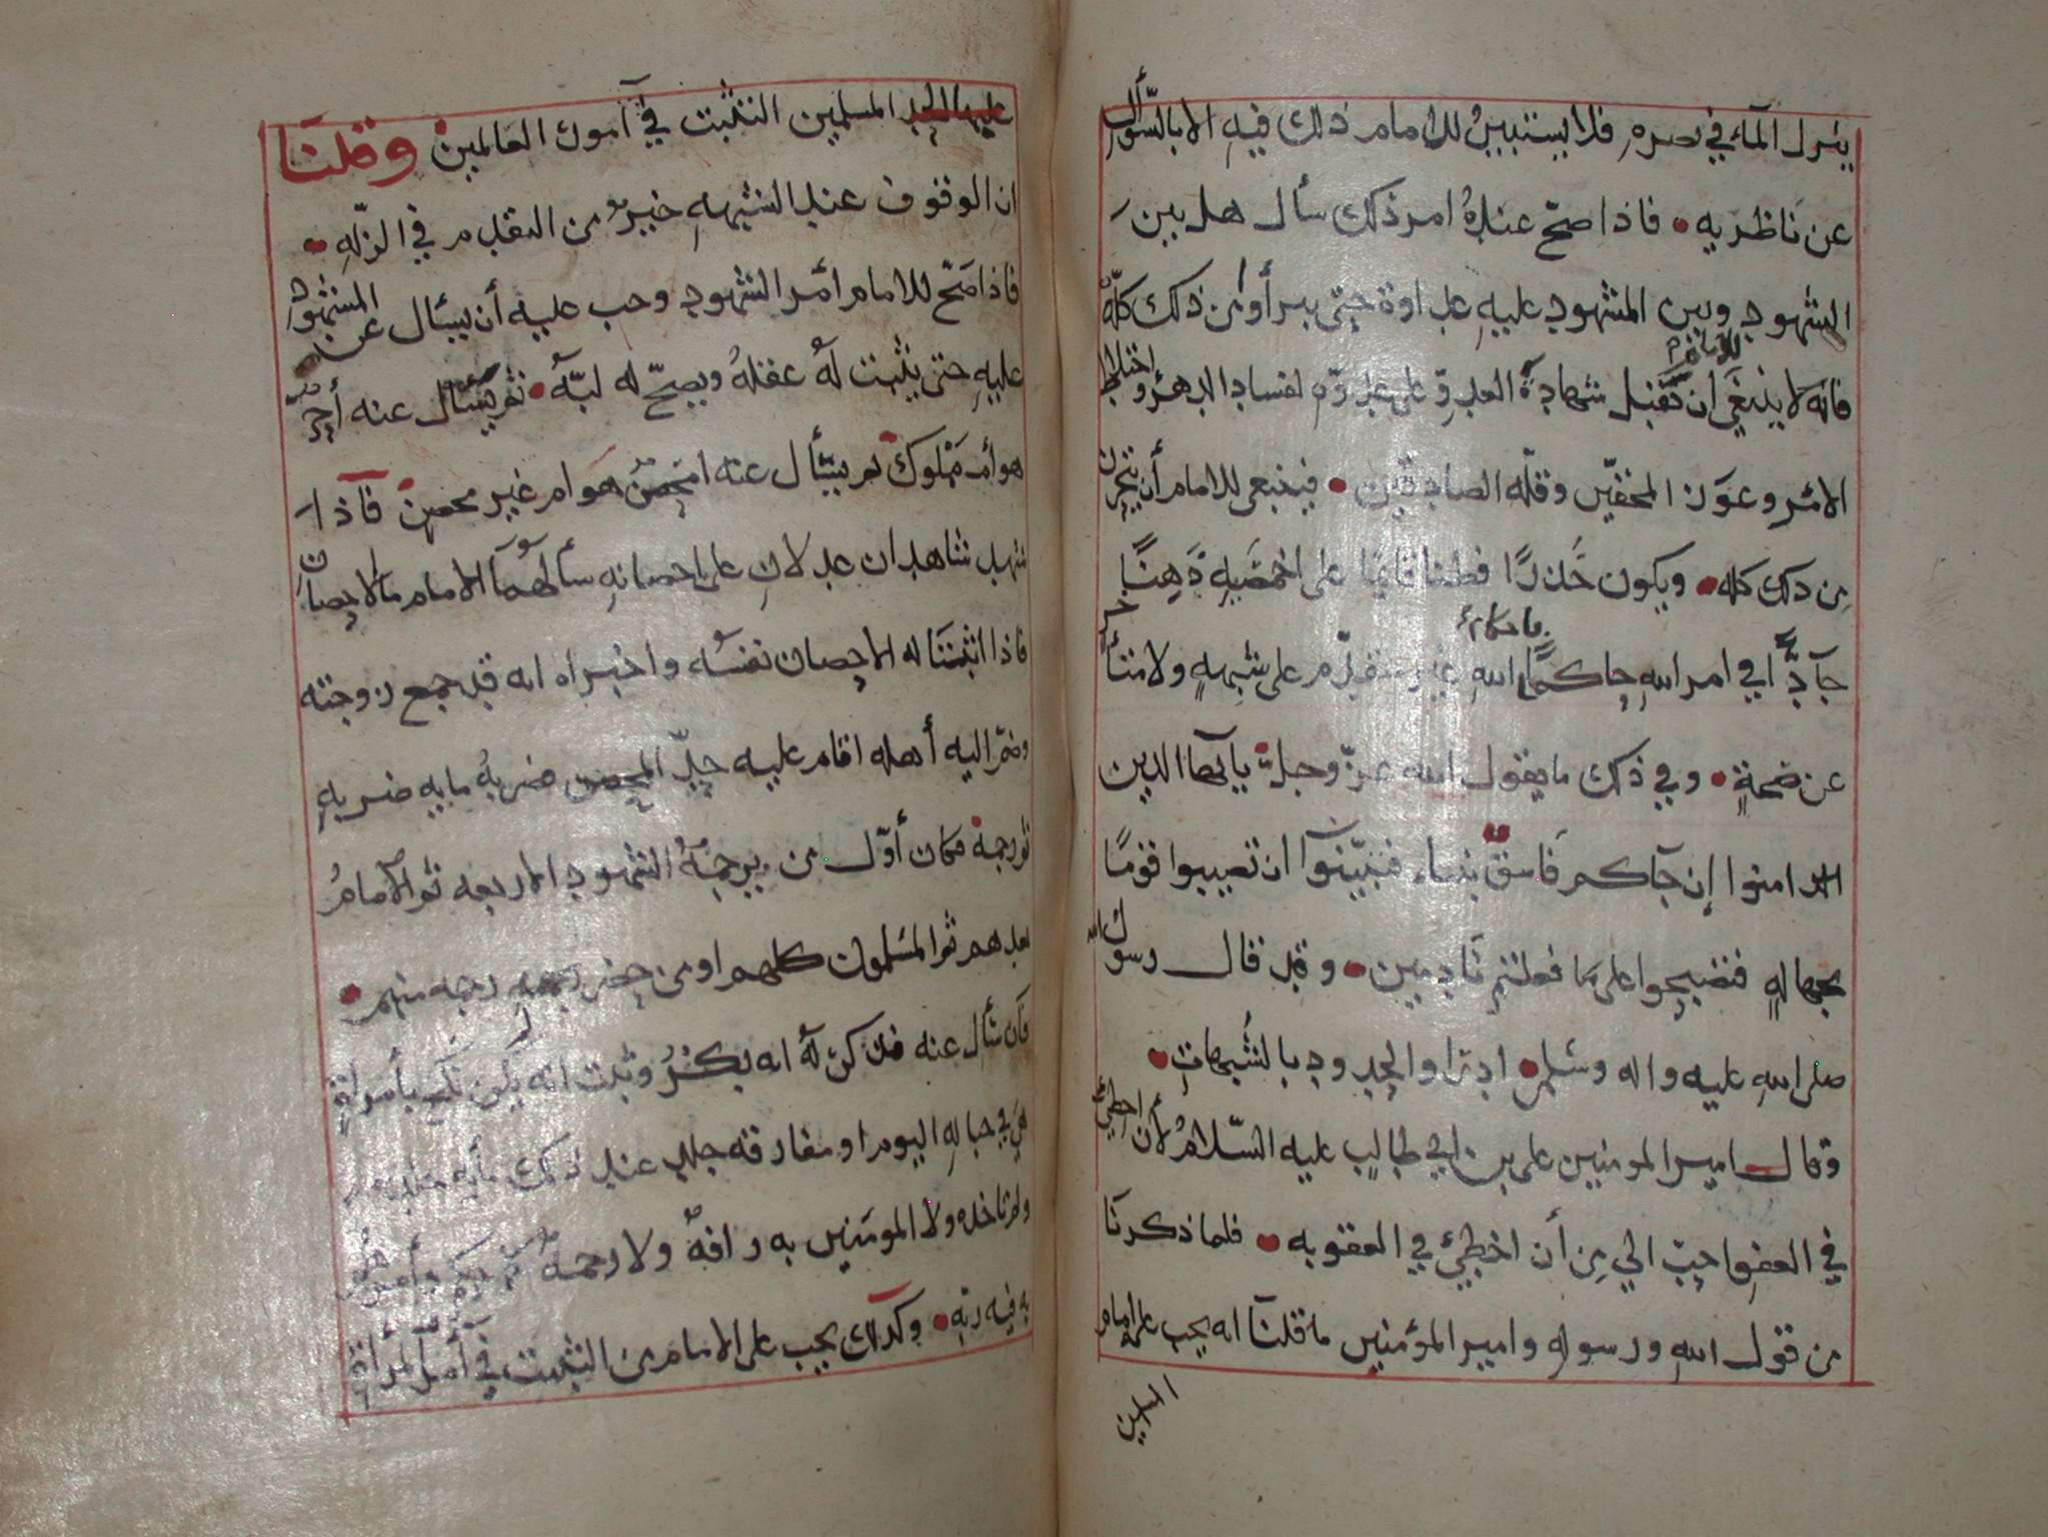 ينزل المآء في بصره فلا يستبين للامام ذلك فيه الا بالسّؤال
عن ناظريه • فاذا صحّ عنده امر ذلك سأل هل بين
الشهود وبين المشهود عليه عداوة حتى يبرأوا من ذلك كلّه
فانه لا ينبغي للامام ان تقبل شهادة العدوّ على عدوّه لفساد الدهر واختلاط
الامر وعون المحقين وقله الصادقين • فينبغي للامام أن يتحرز
من ذلك كله • ويكون حَذِرًا فطنا قائمًا على اخمصيه ذَهِنًا
جآدًّا في امر الله حاكمًا باحكام الله غير متقدّم على شبهةٍ ولا متأخر
عن صحةٍ • وفي ذلك ما يقول الله عزّ وجلّ يا آيها الذين
امنوا إن جآكم فاسق بنباء فتبيّنوآ ان تصيبوا قومًا
بجهالهٍ فتصبحوا على ما فعلتم نادمين • وقد قال رسول الله
صلى الله عليه واله وسلم • ادرٲوا الحدود بالشبهات •
وقال امير المومنين على بن ابي طالب عليه السّلام لأن اخطئ
في العفو احبّ الي من أن اخطئ في العقوبه • فلما ذكرنا
من قول الله ورسوله وامير المؤمنين ما قلنا انه يجب على امام
المسلمين
المسلمين التثبت في آمور العالمين وقلنا
ان الوقوف عند الشبهه خير من التقدم في الزلّه •
فاذا صَحّ للامام امر الشهود وجب عليه أن يسأل عن المشهود
عليه حتى يثبت له عقلهُ ويصحّ له لبّهُ • ثم يَسْأل عنه أحرّ
هو أم مَمْلوك ثم يسأل عنه امحصن هو ام غير محصن فآذا
شهد شاهدان عدلان على احصانه سألهما الامام ما الاحصان
فاذا اثبتا له الاحصان نفسه واخبراه انه قد جمع زوجته
وضمّ اليه أهله اقام عليه حدّ المحصن ضربهُ مايه ضربهٍ
ثم رجمه فكان أوّل من يرجمهُ الشهود الاربعه ثم الآمامُ
بعدهم ثم المسلمون كلهم او من حضر رجمه منهم •
فآن سأل عنه فذكر له انه بكرُ وثبت انه لم يكن نكح بأمرأةٍ
هي في حباله اليوم او مفارقه جلد عند ذلك مأيه جلده
ولم تاخذه ولا المومنين به رافهٌ ولا رحمهٌ
به فيه ربه • وكذلك يجب على الامام من التثبت في آمر المرأة